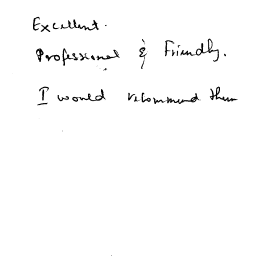 Excellent.
Professional & Friendly.
I would recommend them